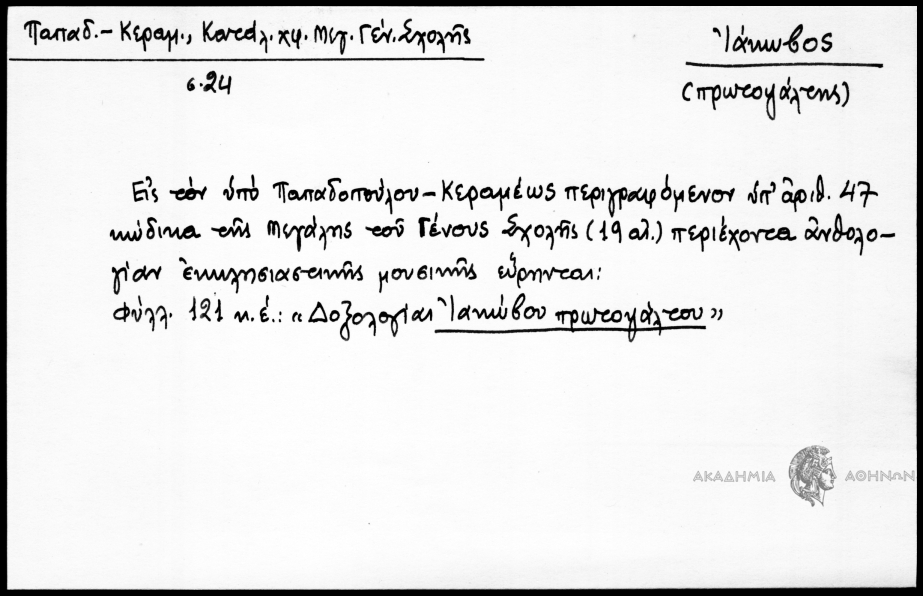 Παπαδ.-Κεραμ., Κατάλ. χφ. Μεγ. Γέν. Σχολῆς
σ. 24
Ἰάκωβος
(πρωτοψάλτης)
Εἰς τὸν ὑπὸ Παπαδοπούλου-Κεραμέως περιγραφόμενον ὑπ' ἀριθ. 47
κώδικα τῆς Μεγάλης τοῦ Γένους Σχολῆς (19 αἰ.) περιέχοντα ἀνθολο-
γίαν ἐκκλησιαστικῆς μουσικῆς εὕρηνται:
Φύλλ. 121 κ. ἑ.: «Δοξολογίαι Ἰακώβου πρωτοψάλτου»
ΑΚΑΔΗΜΙΑ ΑΘΗΝΩΝ